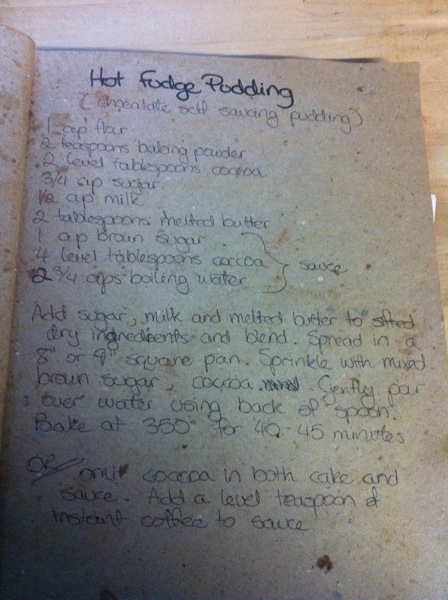 Hot Fudge Pudding
(chocolate self saucing pudding)
1 cup flour
2 teaspoons baking powder
2 level tablespoons cocoa
3/4 cup sugar
1/2 cup milk
2 tablespoons melted butter
1 cup brown sugar
4 level tablespoons cocoa } sauce
2 3/4 cups boiling water
Add sugar, milk and melted butter to sifted
dry ingredients and blend. Spread in a
8" or 9" square pan. Sprinkle with mixed
brown sugar, cocoa. Gently pour
over water using back of spoon.
Bake at 350° for 40-45 minutes
OR omit cococa in both cake and
sauce. Add a level teaspoon of
instant coffee to sauce